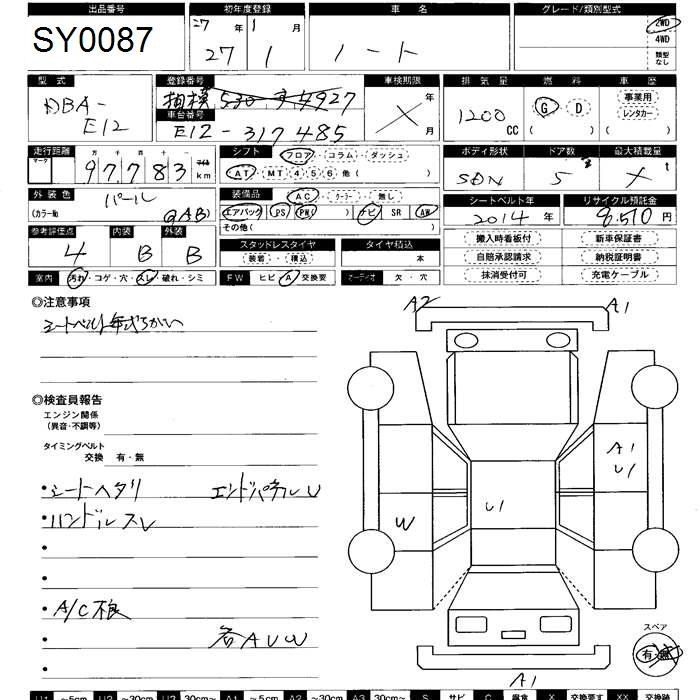 出品番号 初年度登録 車名 グレード/類別型式
SY0087 27年 1月 2WD
27 1 ノート 4WD
類型なし
型式 登録番号 車検期限 排気量 燃料 車歴
DBA- 相模 530 す 4927 × 年 1200 G・D 事業用
E12 車台番号 月 CC ( ) レンタカー
E12-317485 ( )
走行距離 シフト フロア・コラム・ダッシュ ボディ形状 ドア数 最大積載量
マーク 万 千 百 十 一 マイル AT・MT(4 5 6 他( ) SDN 5 × t
97,783 km
外装色 パール 装備品 AC・クーラー・無し シートベルト年 リサイクル預託金
(カラー№ QAB) エアバック PS PW( ) ナビ SR AW 2014年 8,510円
参考評価点 内装 外装 その他( )
4 B B スタッドレスタイヤ タイヤ積込 搬入時看板付 新車保証書
装着・積込 本 自賠承認請求 納税証明書
室内 汚れ・コゲ・穴・スレ・破れ・シミ FW ヒビ・A・交換要 オーディオ 欠・穴 抹消受付可 充電ケーブル
◎注意事項
シートベルト年式ちがい
A2 A1
◎検査員報告
エンジン関係
(異音・不調等)
タイミングベルト
交換 有・無
A1
U1
・シートヘタリ エンドパネルU
・ハンドルスレ
U1
W
・
・
・A/C不良
・ 各AUW
スペア
有・無
A1
U1 ~5cm U2 ~30cm U3 30cm~ A1 ~5cm A2 ~30cm A3 30cm~ S サビ C 腐食 X 交換要す XX 交換跡